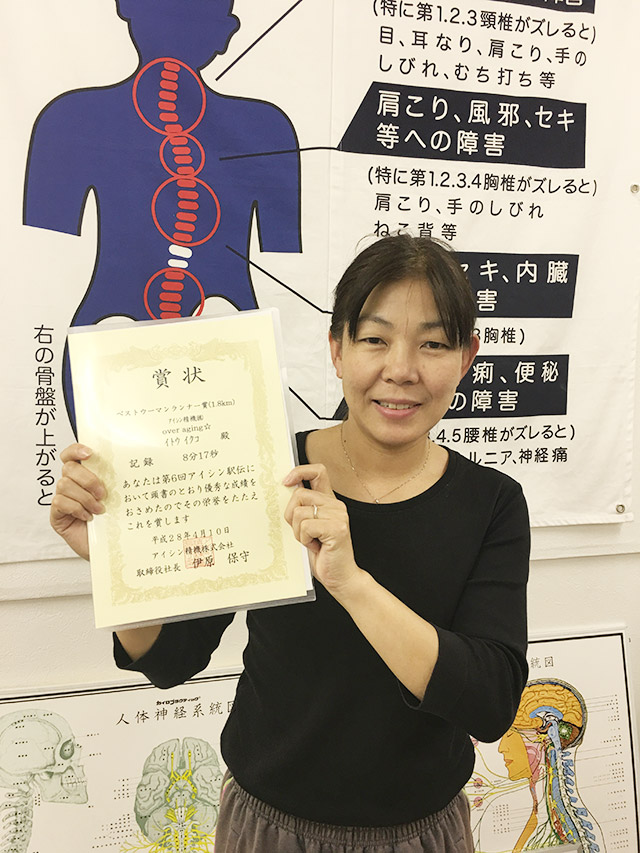 (特に第1.2.3頸椎がズレると)
目、耳なり、肩こり、手の
しびれ、むち打ち等
肩こり、風邪、セキ
等への障害
(特に第1.2.3.4胸椎がズレると)
肩こり、手のしびれ
ねこ背等
セキ、内臓
害
胸椎)
痢、便秘
の障害
.4.5腰椎がズレると)
ルニア、神経痛
右の骨盤が上がると
賞状
ベストウーマンランナー賞(1.8km)
アイシン精機㈱
over aging☆
イトウ イクコ 殿
記録 8分17秒
あなたは第6回アイシン駅伝に
おいて頭書のとおり優秀な成績を
おさめたのでその栄誉をたたえ
これを賞します
平成28年4月10日
アイシン精機株式会社
取締役社長 伊原 保守
カイロプラクティック
人体神経系統図
系統図